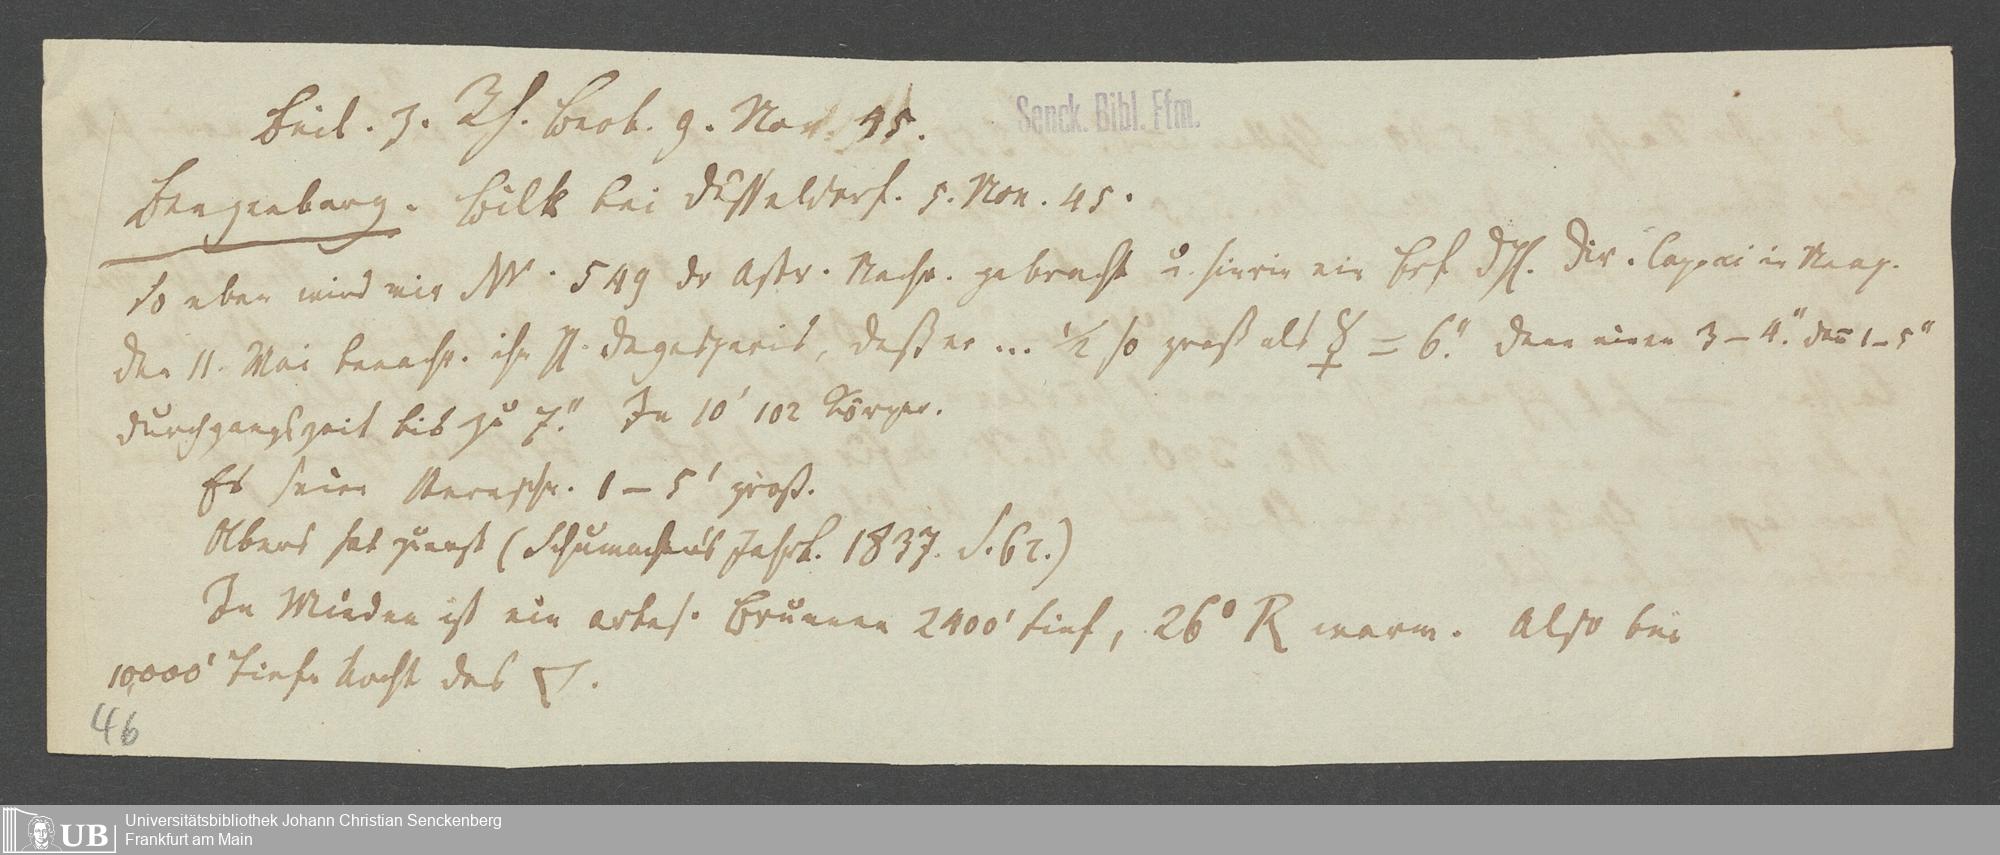 Beil. z. Rh. Beob. 9. Nov. 45.
Senck. Bibl. Ffm.
Benzenberg. Bilk bei Düsseldorf. 5. Nov. 45.
So eben wird mir N. 549 dr Astr. Nachr. gebracht u. hierin ein Dir. Cappoci in Neap.
den 11. Mai benachr. ihn H. degasparis, daß er ... 1/2 so groß als ☿ = 6". dann einen 3–4". dan̄ 1–5"
durchgangszeit bis zu 7". In 10' 102 Körper.
Es seien 1–5' groß.
Olbers hat zuerst (Schumacher's Jahrb. 1837. S. 62.)
In Minden ist ein artes. Brunnen 2400' tief, 26° R warm. Also bei
10,000' Tiefe kocht das ▽.
46
UB
Universitätsbibliothek Johann Christian Senckenberg
Frankfurt am Main